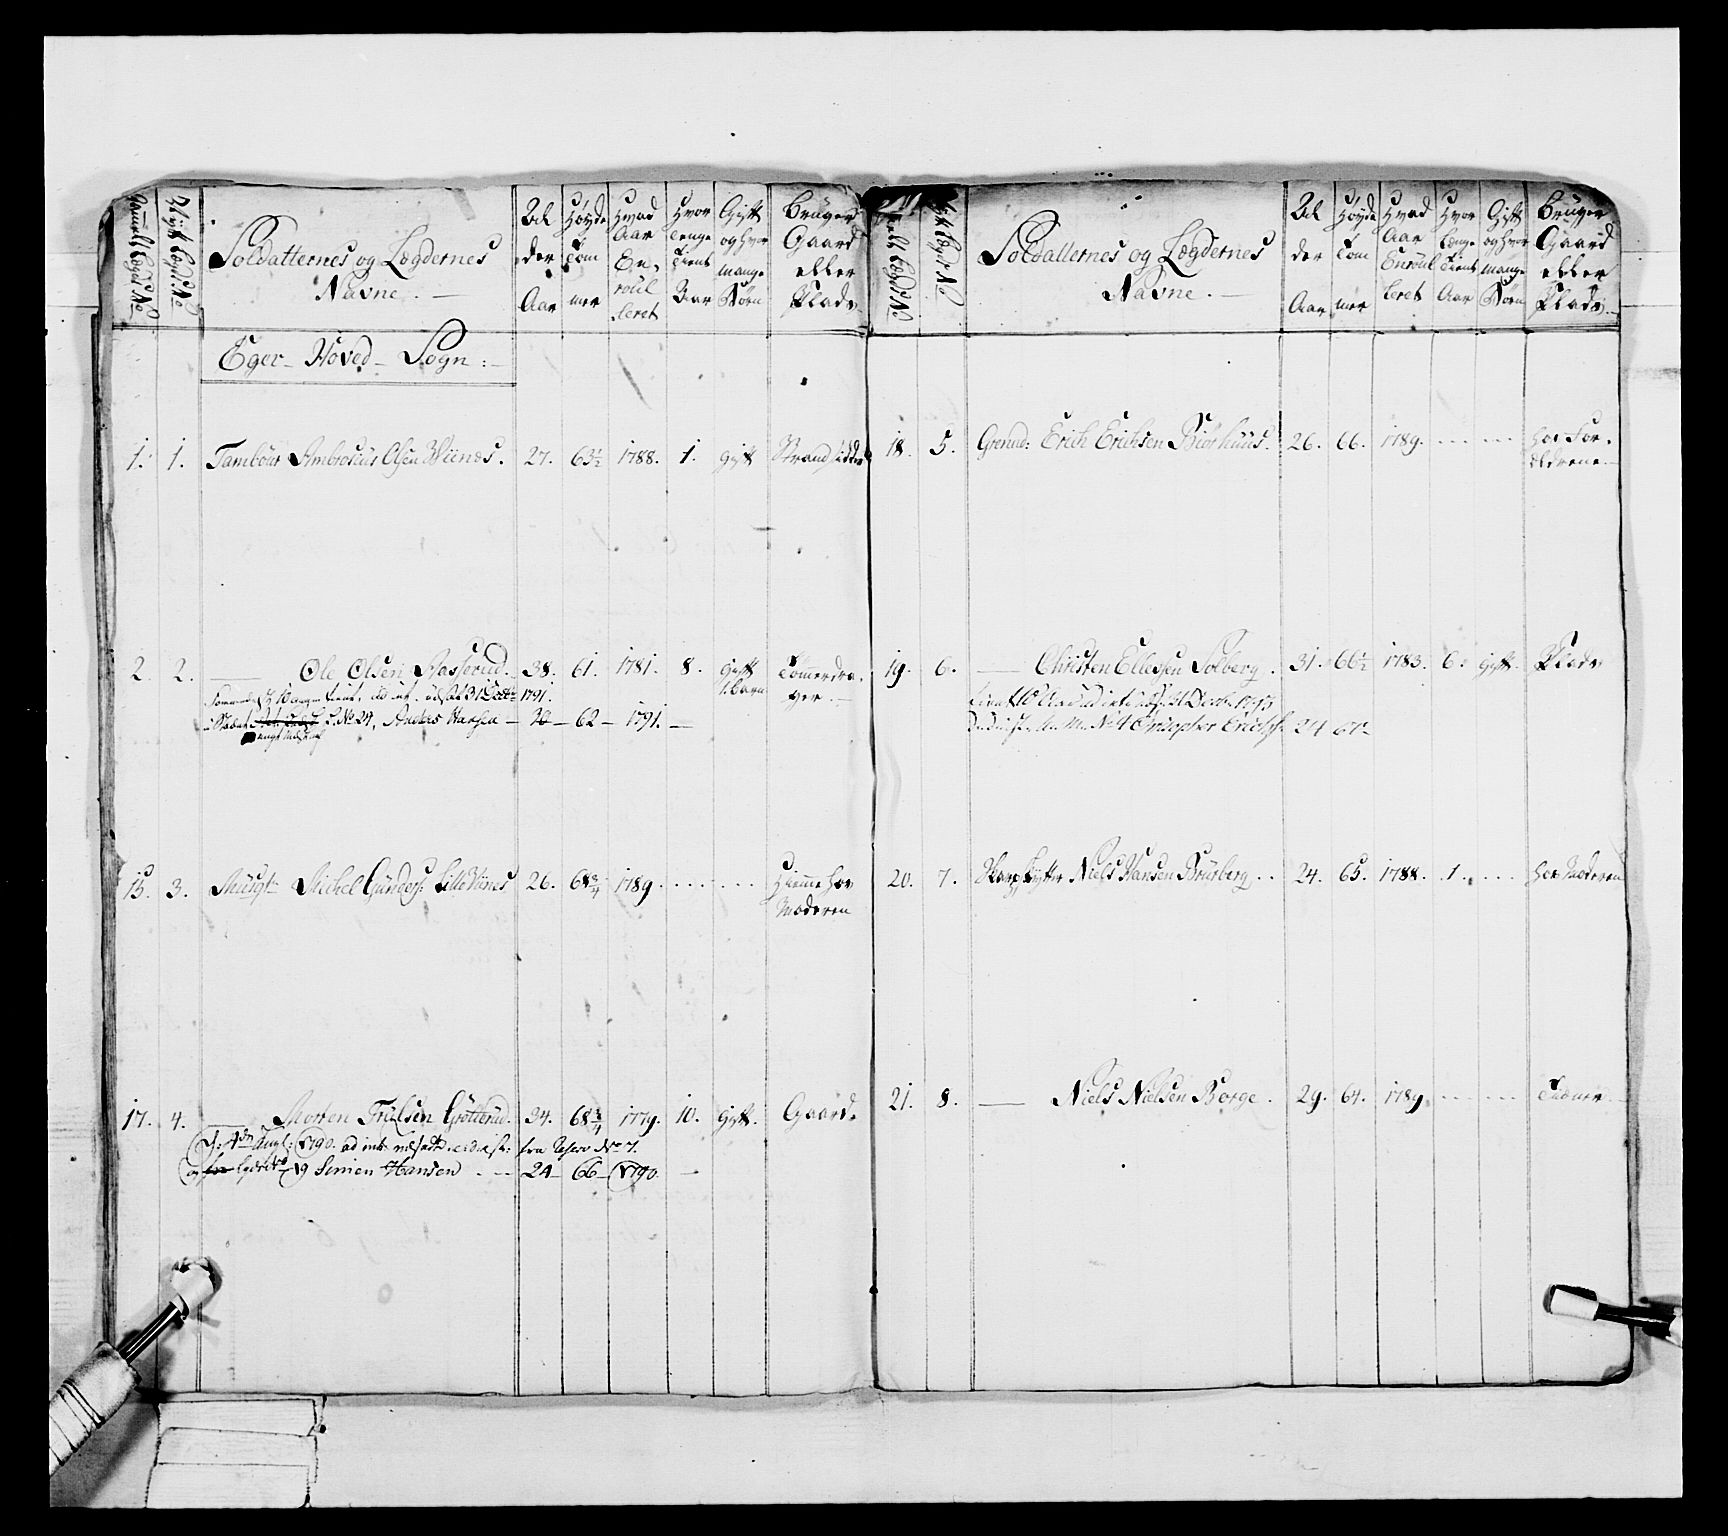 Gamelt Lægds No
Nyt Lægds No
Soldatternes og Lægdernes
Navne.
Al
der
Aar
Høyde
Tom
mer
Hvad
Aar
En-
roul
leret
Hvor
Længe
Tient
Aar
Gift
og hvor
mange
Børn
Bruger
Gaard
eller
Plads
Eger Hoved Sogn:
1. 1. Tambour Ambrosius Olsen Wiines. 27. 63½ 1788. 1. gift Strandsidder
2. 2. — Ole Olsen Aasserud. 38. 61. 1781. 8. gift Tømmerdra-
1. barn ger.
tient, ud 31 1791.
No 24, Anders Hansen — 20 — 62 — 1791. —
15. 3. Musqt Michel Gunders: Lille Wiines 26. 68¾ 1789. Hiemme hos
Moderen
17. 4. Morten Trulsen Grøtterud. 34. 68¾ 1779. 10. gift. Gaard.
1790. ad int: fra No 7.
19 Simen Hansen — 24 — 66 — 1790. —
Lægds No
Nyt Lægds No
Soldatternes og Lægdernes
Navne.
Al
der
Aar
Høyde
Tom
mer
Hvad
Aar
Enroul
leret
Hvor
Længe
Tient
Aar
Gift
og hvor
mange
Børn
Bruger
Gaard
eller
Plads
18. 5. Grenad: Erich Erichsen Biørhuus. 26. 66. 1789. hos For-
ældrene.
19. 6. — Christen Ellessen Solberg. 31. 66½ 1783. 6. gift. Plads
Tient 10 Aar
No 4 Christopher Erichs: 24 67
20. 7. Skarpskytter Niels Hansen Bruseberg 24. 65. 1788. 1. hos Moderen
21. 8. — Niels Nielsen Borge. 29. 64. 1789. Tiener.